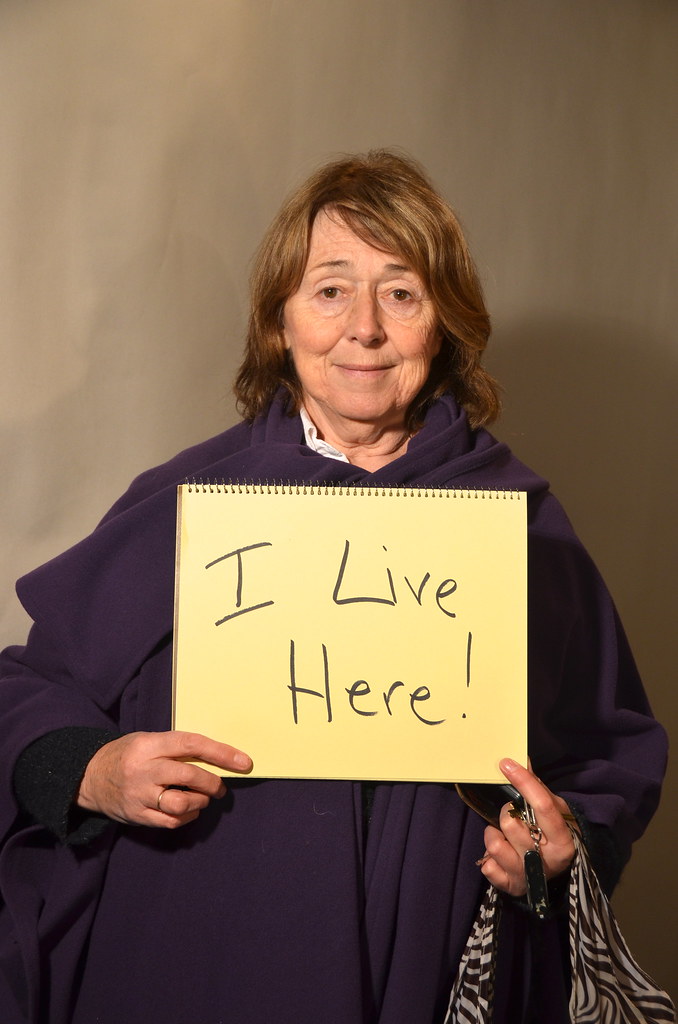 I Live
Here!